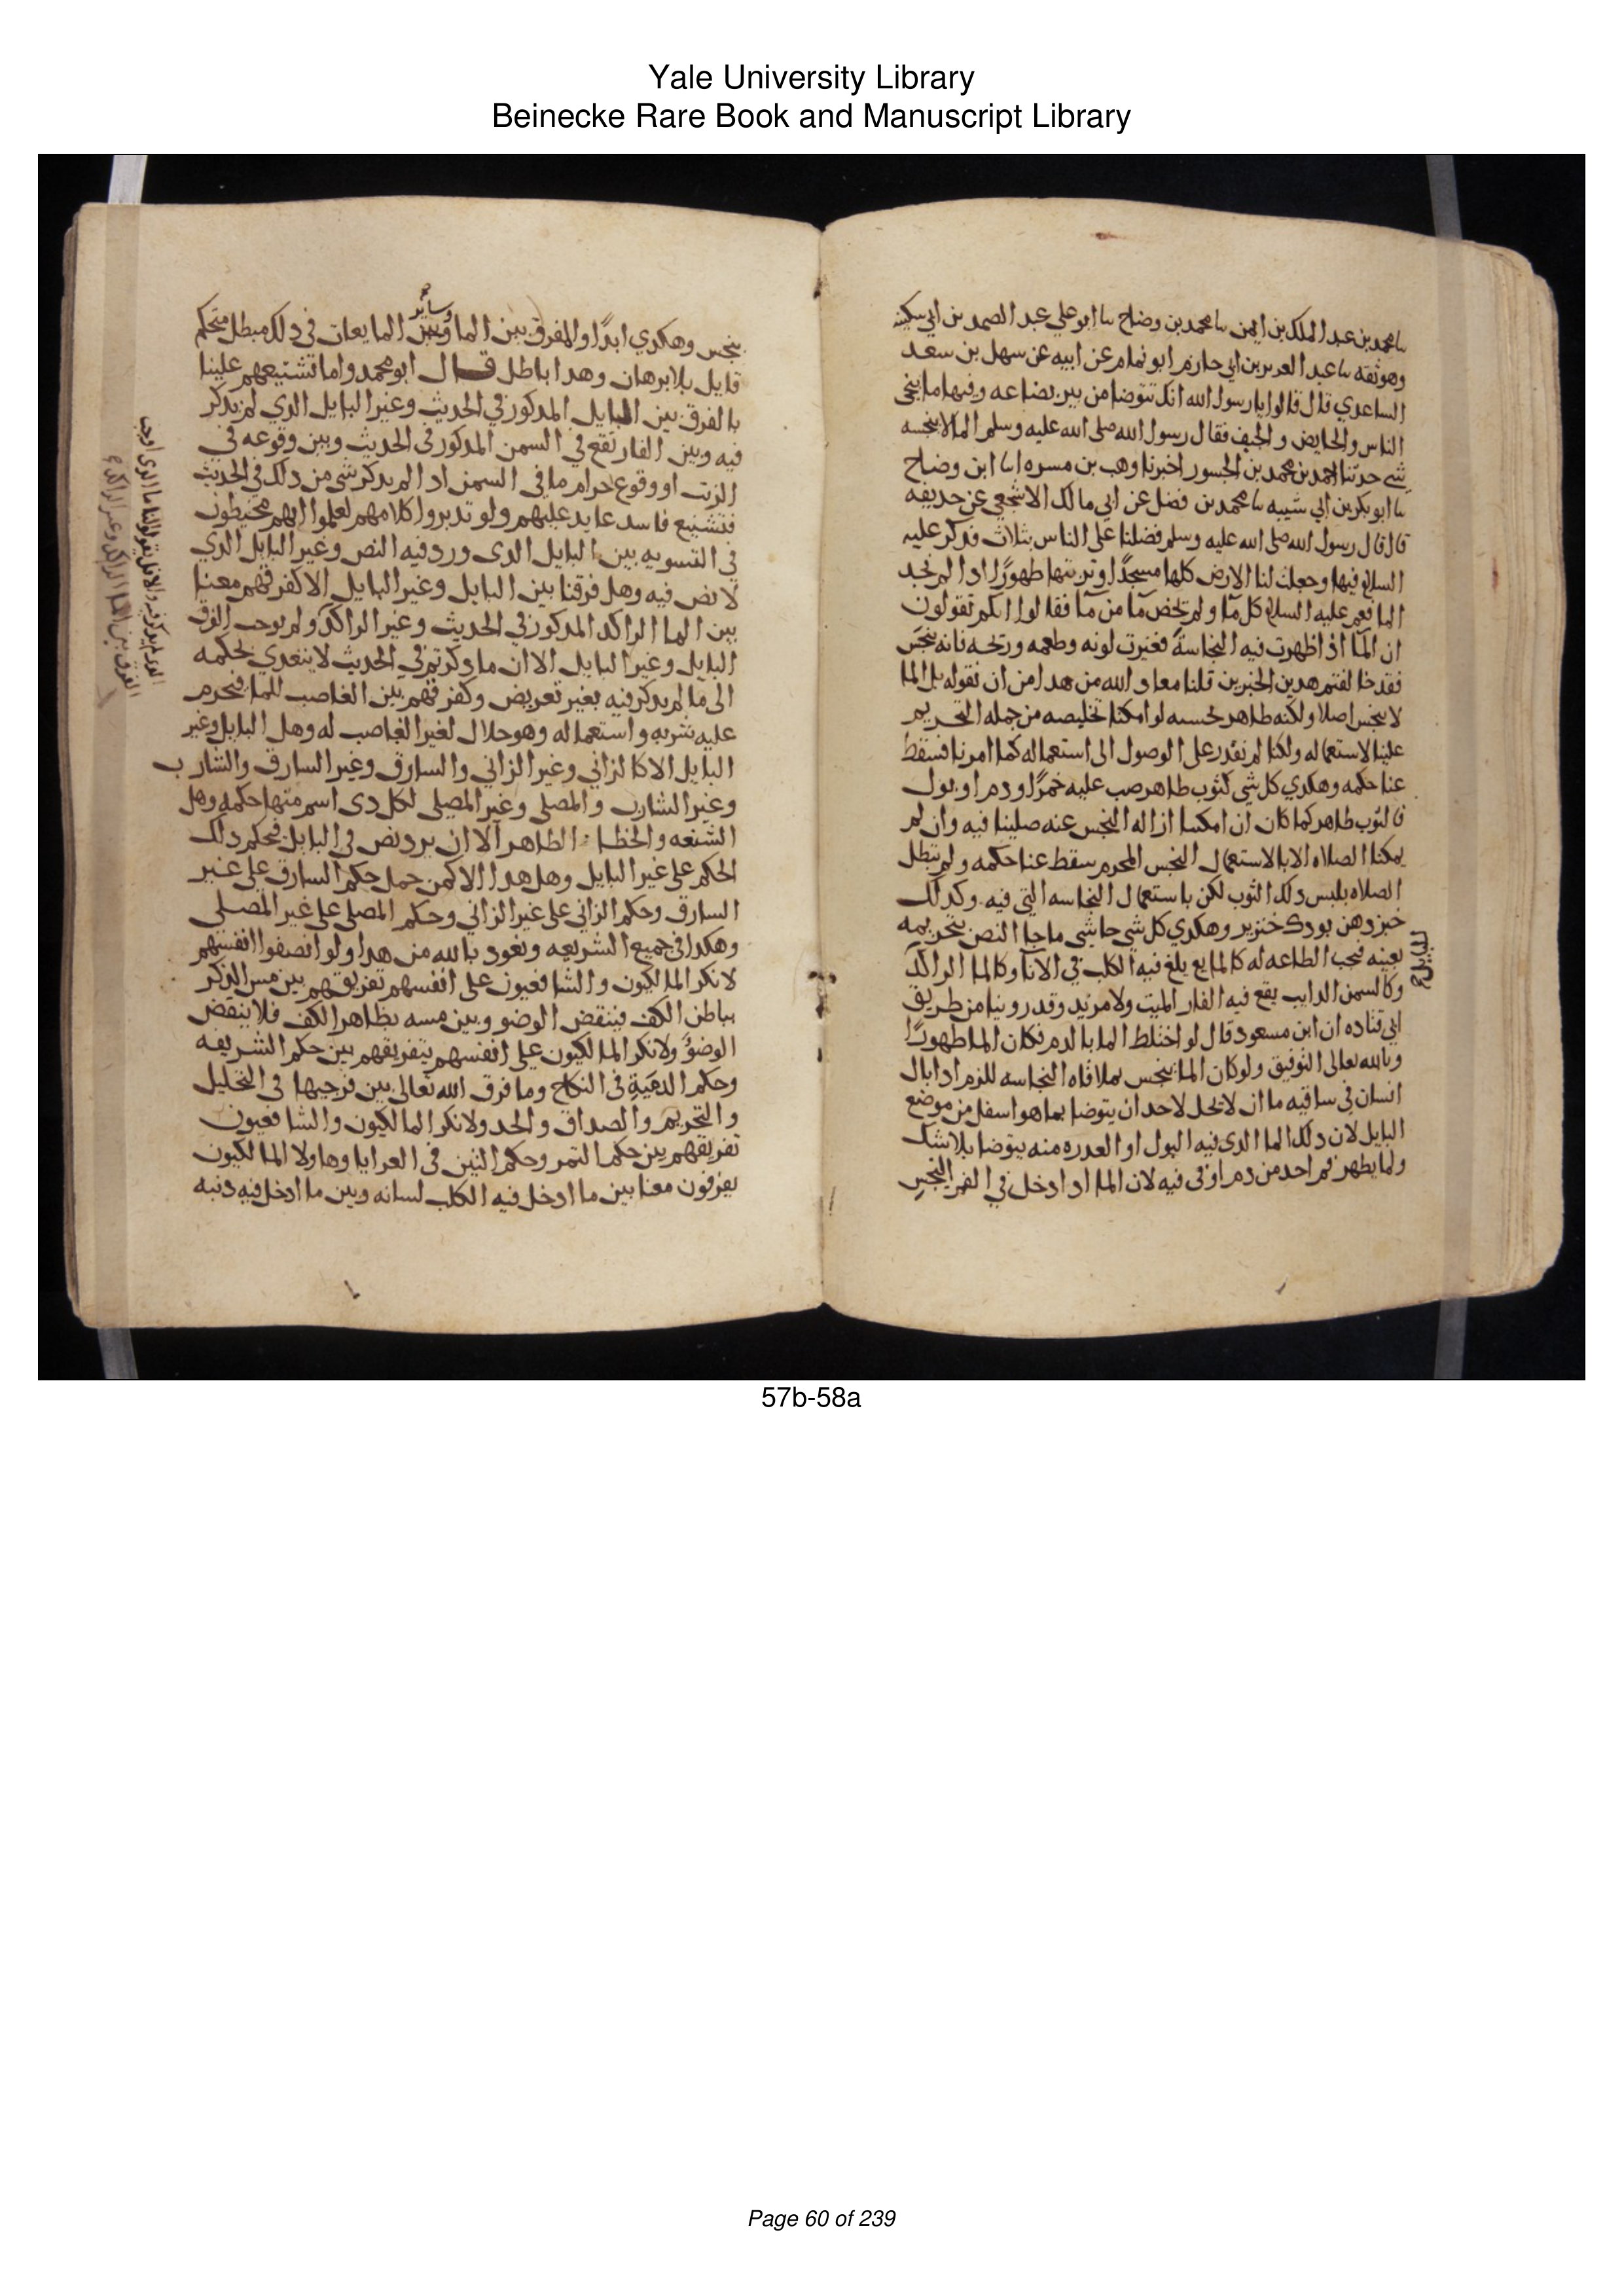 Yale University Library
Beinecke Rare Book and Manuscript Library
سا محمد بن عبد الملك بن ايمن سا محمد بن وضاح سا ابو علي عبد الصمد بن ابي سكينه
وهو ثقه سا عبد العزيز بن ابي حازم ابو تمام عن ابيه عن سهل بن سعد
الساعدي قال قالوا يا رسول الله انك تتوضا من بير بضاعه وفيها ما ينجى
الناس والحايض والجنب فقال رسول الله صلى الله عليه وسلم الما لا ينجسه
شي حدثنا احمد بن محمد بن الجسور اخبرنا وهب بن مسره اسا ابن وضاح
سا ابو بكر بن ابي شيبه سا محمد بن فضل عن ابي مالك الاشجعي عن حديفه
قال قال رسول الله صلى الله عليه وسلم فضلنا على الناس بثلاث فدكر عليه
السلام فيها وجعلت لنا الارض كلها مسجدًا وتربتها طهورًا ادا لم نجد
الما فعم عليه السلام كل ما ولم يخص ما من ما فقالوا انكم تقولون
ان الما اذا ظهرت فيه النجاسة فغيرت لونه وطعمه وريحه فانه نجس
فقد خالفتم هدين الخبرين قلنا معاد الله من هدا من ان نقوله بل الما
لا ينجس اصلا ولكنه طاهر بحسبه لو امكنا تخليصه من جمله التحريم
علينا لاستعماله ولكنا لم نقدر على الوصول الى استعماله كما امرنا فسقط
عنا حكمه وهكدي كل شي كثوب طاهر صب عليه خمرًا ودم او بول
فالثوب طاهر كما كان ان امكننا ازاله النجس عنه صلينا فيه وان لم
يمكنا الصلاه الا بالاستعمال النجس المحرم سقط عنا حكمه ولم تبطل
الصلاه بلبس دلك الثوب لكن باستعمال النجاسه التي فيه وكدلك
خبز دهن بودك خنزير وهكدي كل شي حاشى ما جا النص بتحريمه
بعينه فتجب الطاعه له كالمايع يلغ فيه الكلب في الانا وكالما الراكد
للبايل
وكالسمن الدايب يقع فيه الفار الميت ولا مزيد وقد روينا من طريق
ابي قتاده ان ابن مسعود قال لو اختلط الما بالدم فكان الما طهورًا
وبالله تعالى التوفيق ولو كان الما ينجس بملاقاه النجاسه للزم ادا بال
انسان في ساقيه ما ان لا يحل لاحد ان يتوضا بما هو اسفل من موضع
البايل لان دلك الما الدي فيه البول او العدره منه يتوضا بلا شك
ولما يطهر فم احد من دم او قى فيه لان الما ادا دخل في الفم النجس
ينجس وهكدي ابدًا والمفرق بين الما وبين وساير المايعات في دلك مبطل متحكم
قايل بلا برهان وهدا باطل قال ابو محمد واما تشنيعهم علينا
بالفرق بين البايل المدكور في الحديث وغير البايل الدي لم يدكر
فيه وبين الفار تقع في السمن المدكور في الحديث وبين وقوعه في
الزيت او وقوع حرام ما في السمن اد لم يدكر شي من دلك في الحديث
فتشنيع فاسد عايد عليهم ولو تدبروا كلامهم لعلموا انهم مخيطون
في التسويه بين البايل الدي ورد فيه النص وغير البايل الدي
لا نص فيه وهل فرقنا بين البايل وغير البايل الا كفرقهم معنا
بين الما الراكد المدكور في الحديث وغير الراكد ولم يوجب الفرق
البايل وغير البايل الا ان ما دكرتم في الحديث لا يتعدي بحكمه
الى ما لم يدكر فيه بغير تعريض وكفرقهم بين الغاصب للما فيحرم
عليه شربه واستعماله وهو حلال لغير الغاصب له وهل البايل وغير
البايل الا كالزاني وغير الزاني والسارق وغير السارق والشارب
وغير الشارب والمصلي وغير المصلي لكل دى اسم منها حكمه وهل
الشنعه والخطا الظاهر الا ان يرد نص في البايل فيحكم دلك
الحكم على غير البايل وهل هدا الا كمن حمل حكم السارق على غير
السارق وحكم الزاني على غير الزاني وحكم المصلي على غير المصلي
وهكدا في جميع الشريعه ونعود بالله من هدا ولو انصفوا انفسهم
لانكر المالكيون والشافعيون على انفسهم تفريقهم بين مس الدكر
بباطن الكف فينقض الوضو وبين مسه بظاهر الكف فلا ينقض
الوضوُ ولانكر المالكيون على انفسهم بتفريقهم بين حكم الشريفه
وحكم الدنية في النكاح وما فرق الله تعالى بين فرجيها في التحليل
والتحريم والصداق والحد ولانكر المالكيون والشافعيون
تفريقهم بين حكم التمر وحكم التين في العرايا وهاولا المالكيون
يفرقون معنا بين ما ادخل فيه الكلب لسانه وبين ما ادخل فيه دنبه
الفرق بين الما الراكد وغير الراكد
57b-58a
Page 60 of 239